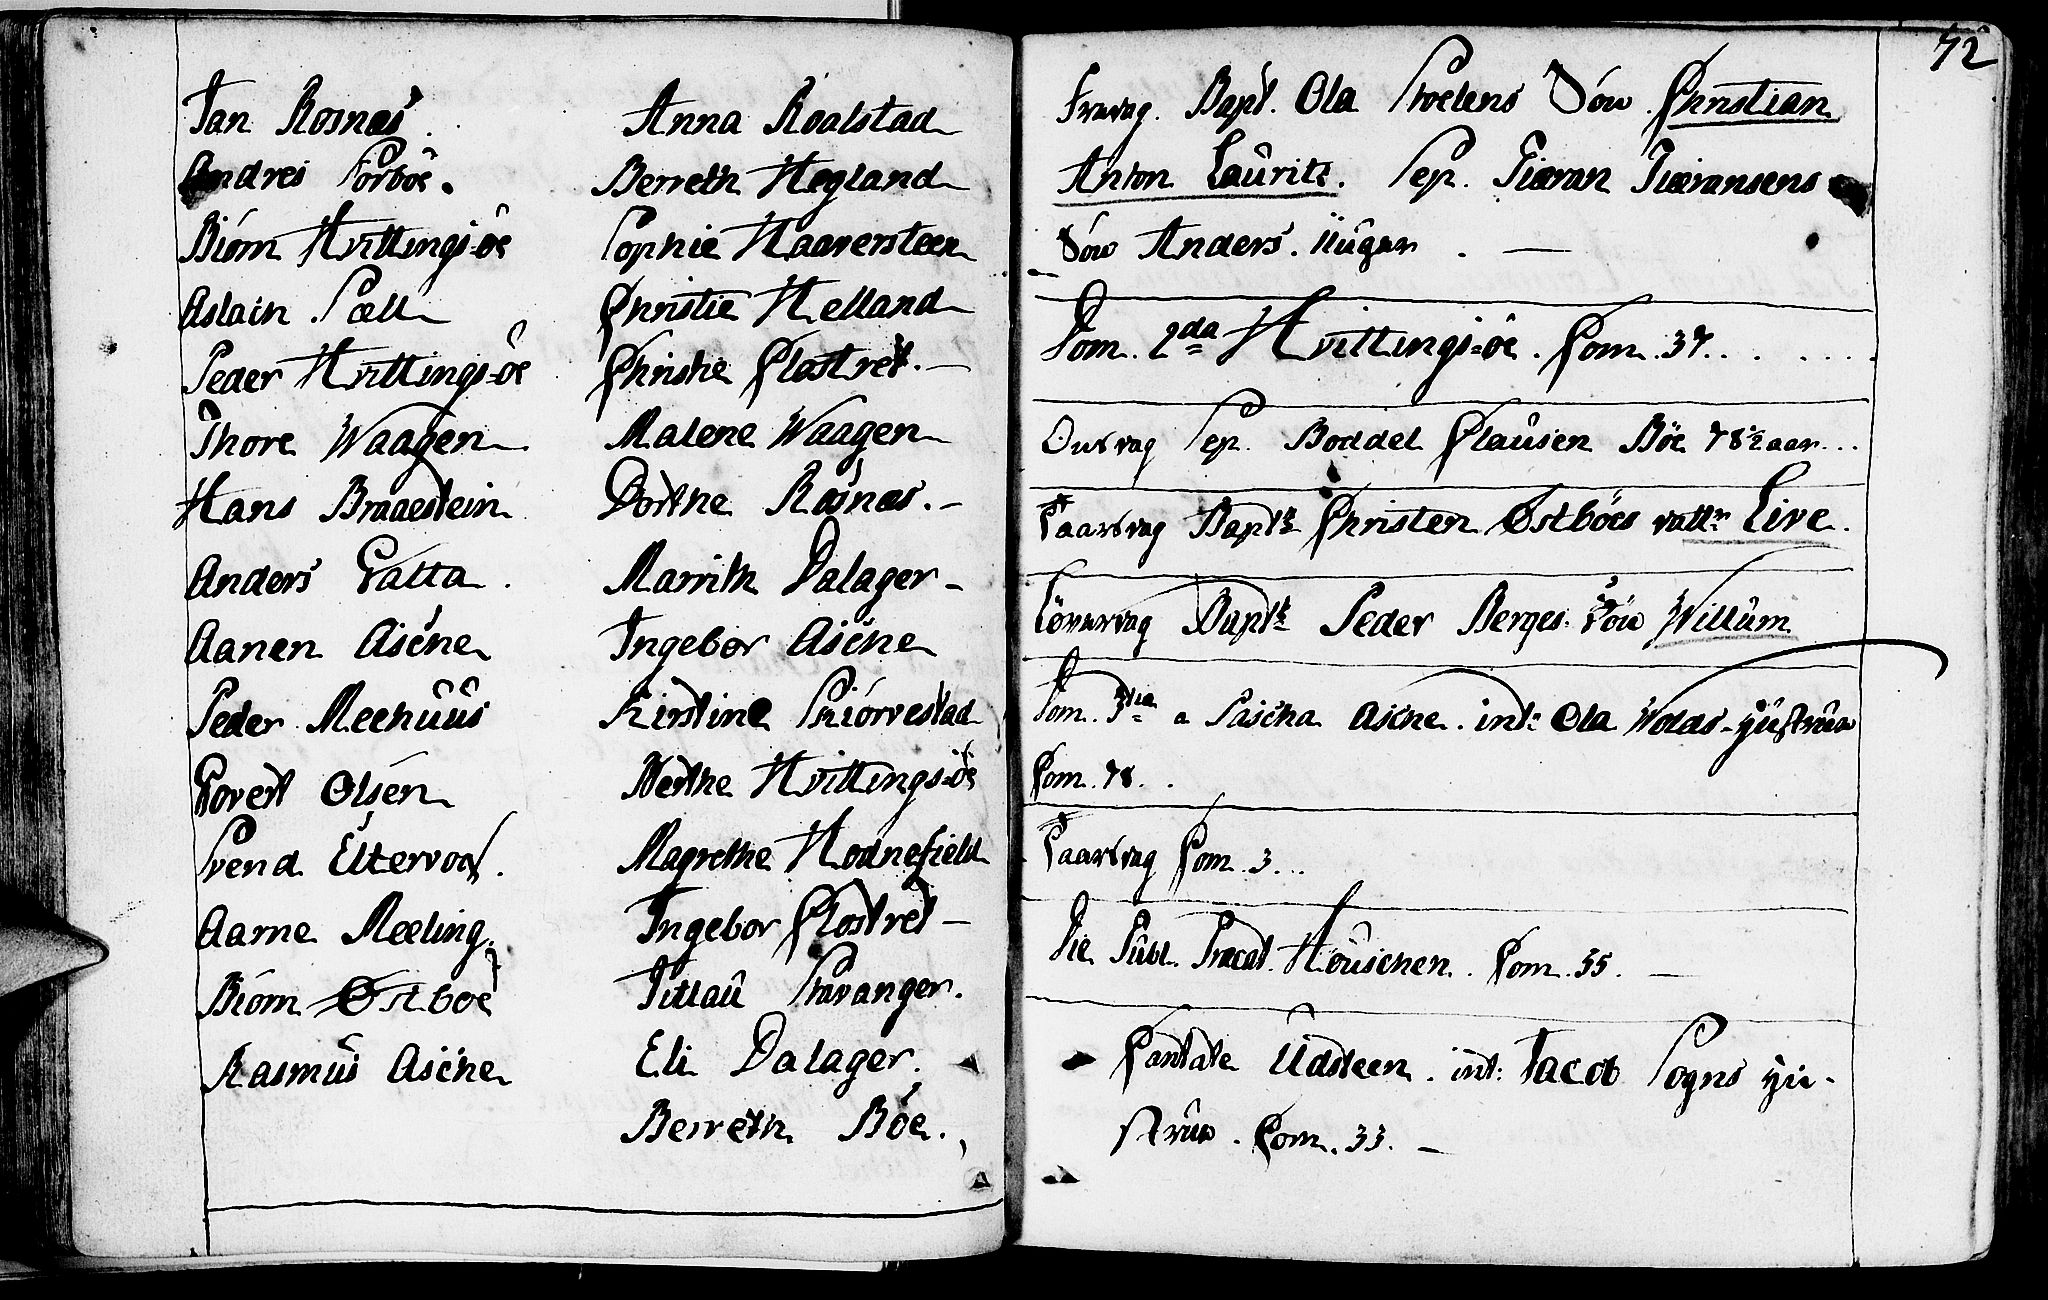 Jan Rosnæs.
Andres Sørbôe.
Biôrn Hvittings-ôe
Aslach Sæll
Peder Hvittings-ôe
Thore Waagen
Hans Braaestein
Anders Galta.
Aanen Asche
Peder Meehuus
Govert Olsen
Svend Ettervog.
Aarne Meeling.
Biôrn Østbôe
Rasmus Asche
Anna Roalstad
Berreth Hegland
Sophie Haaversteen
Christie Helland
Christie Clostret.—
Malene Waagen
Dorthe Rosnæs.—
Marrith Dalager—
Ingebor Asche
Kirstine Skiôrvestad
Merthe Hvittings-ôe
Magrethe Hodnefield
Ingebor Clostret—
Tittau Stavanger.
Eli Dalager.
Berreth Bôe.
72
Fredag. Bapt. Ola Stoelens Sôn Christian
Anton Lauritz. Sep. Tiæran Tiæransens
Sôn Anders. uger. —
Dom. 2da Hvittings-ôe. Com. 37....
Onsdag Sep. Boddel Clausen Bôe 78½ aar...
Taarsdag Bapt. Christen Østbôes datt. Live.
Lôverdag Bapt. Peder Berges Sôn Willum
Dom. 3tia a Pascha Asche. int: Ola Wolds-
Com. 78..
Taarsdag Com. 3...
Die Publ. Precat. Houschen. Com. 35. —
Cantate Udsteen. int: Jacob Sogns
Com. 33. —